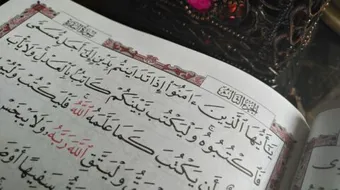 الجزء الثالث
يَٰٓأَيُّهَا ٱلَّذِينَ ءَامَنُوٓا۟ إِذَا تَدَايَنتُم بِدَيْنٍ إِلَىٰٓ أَجَلٍ مُّسَمًّى
فَٱكْتُبُوهُ وَلْيَكْتُب بَّيْنَكُمْ كَاتِبٌۢ بِٱلْعَدْلِ وَلَا يَأْبَ
أَن يَكْتُبَ كَمَا عَلَّمَهُ ٱللَّهُ فَلْيَكْتُبْ
وَلْيَتَّقِ ٱللَّهَ رَبَّهُۥ وَلَا يَبْخَسْ
سَفِيهًا أَوْ